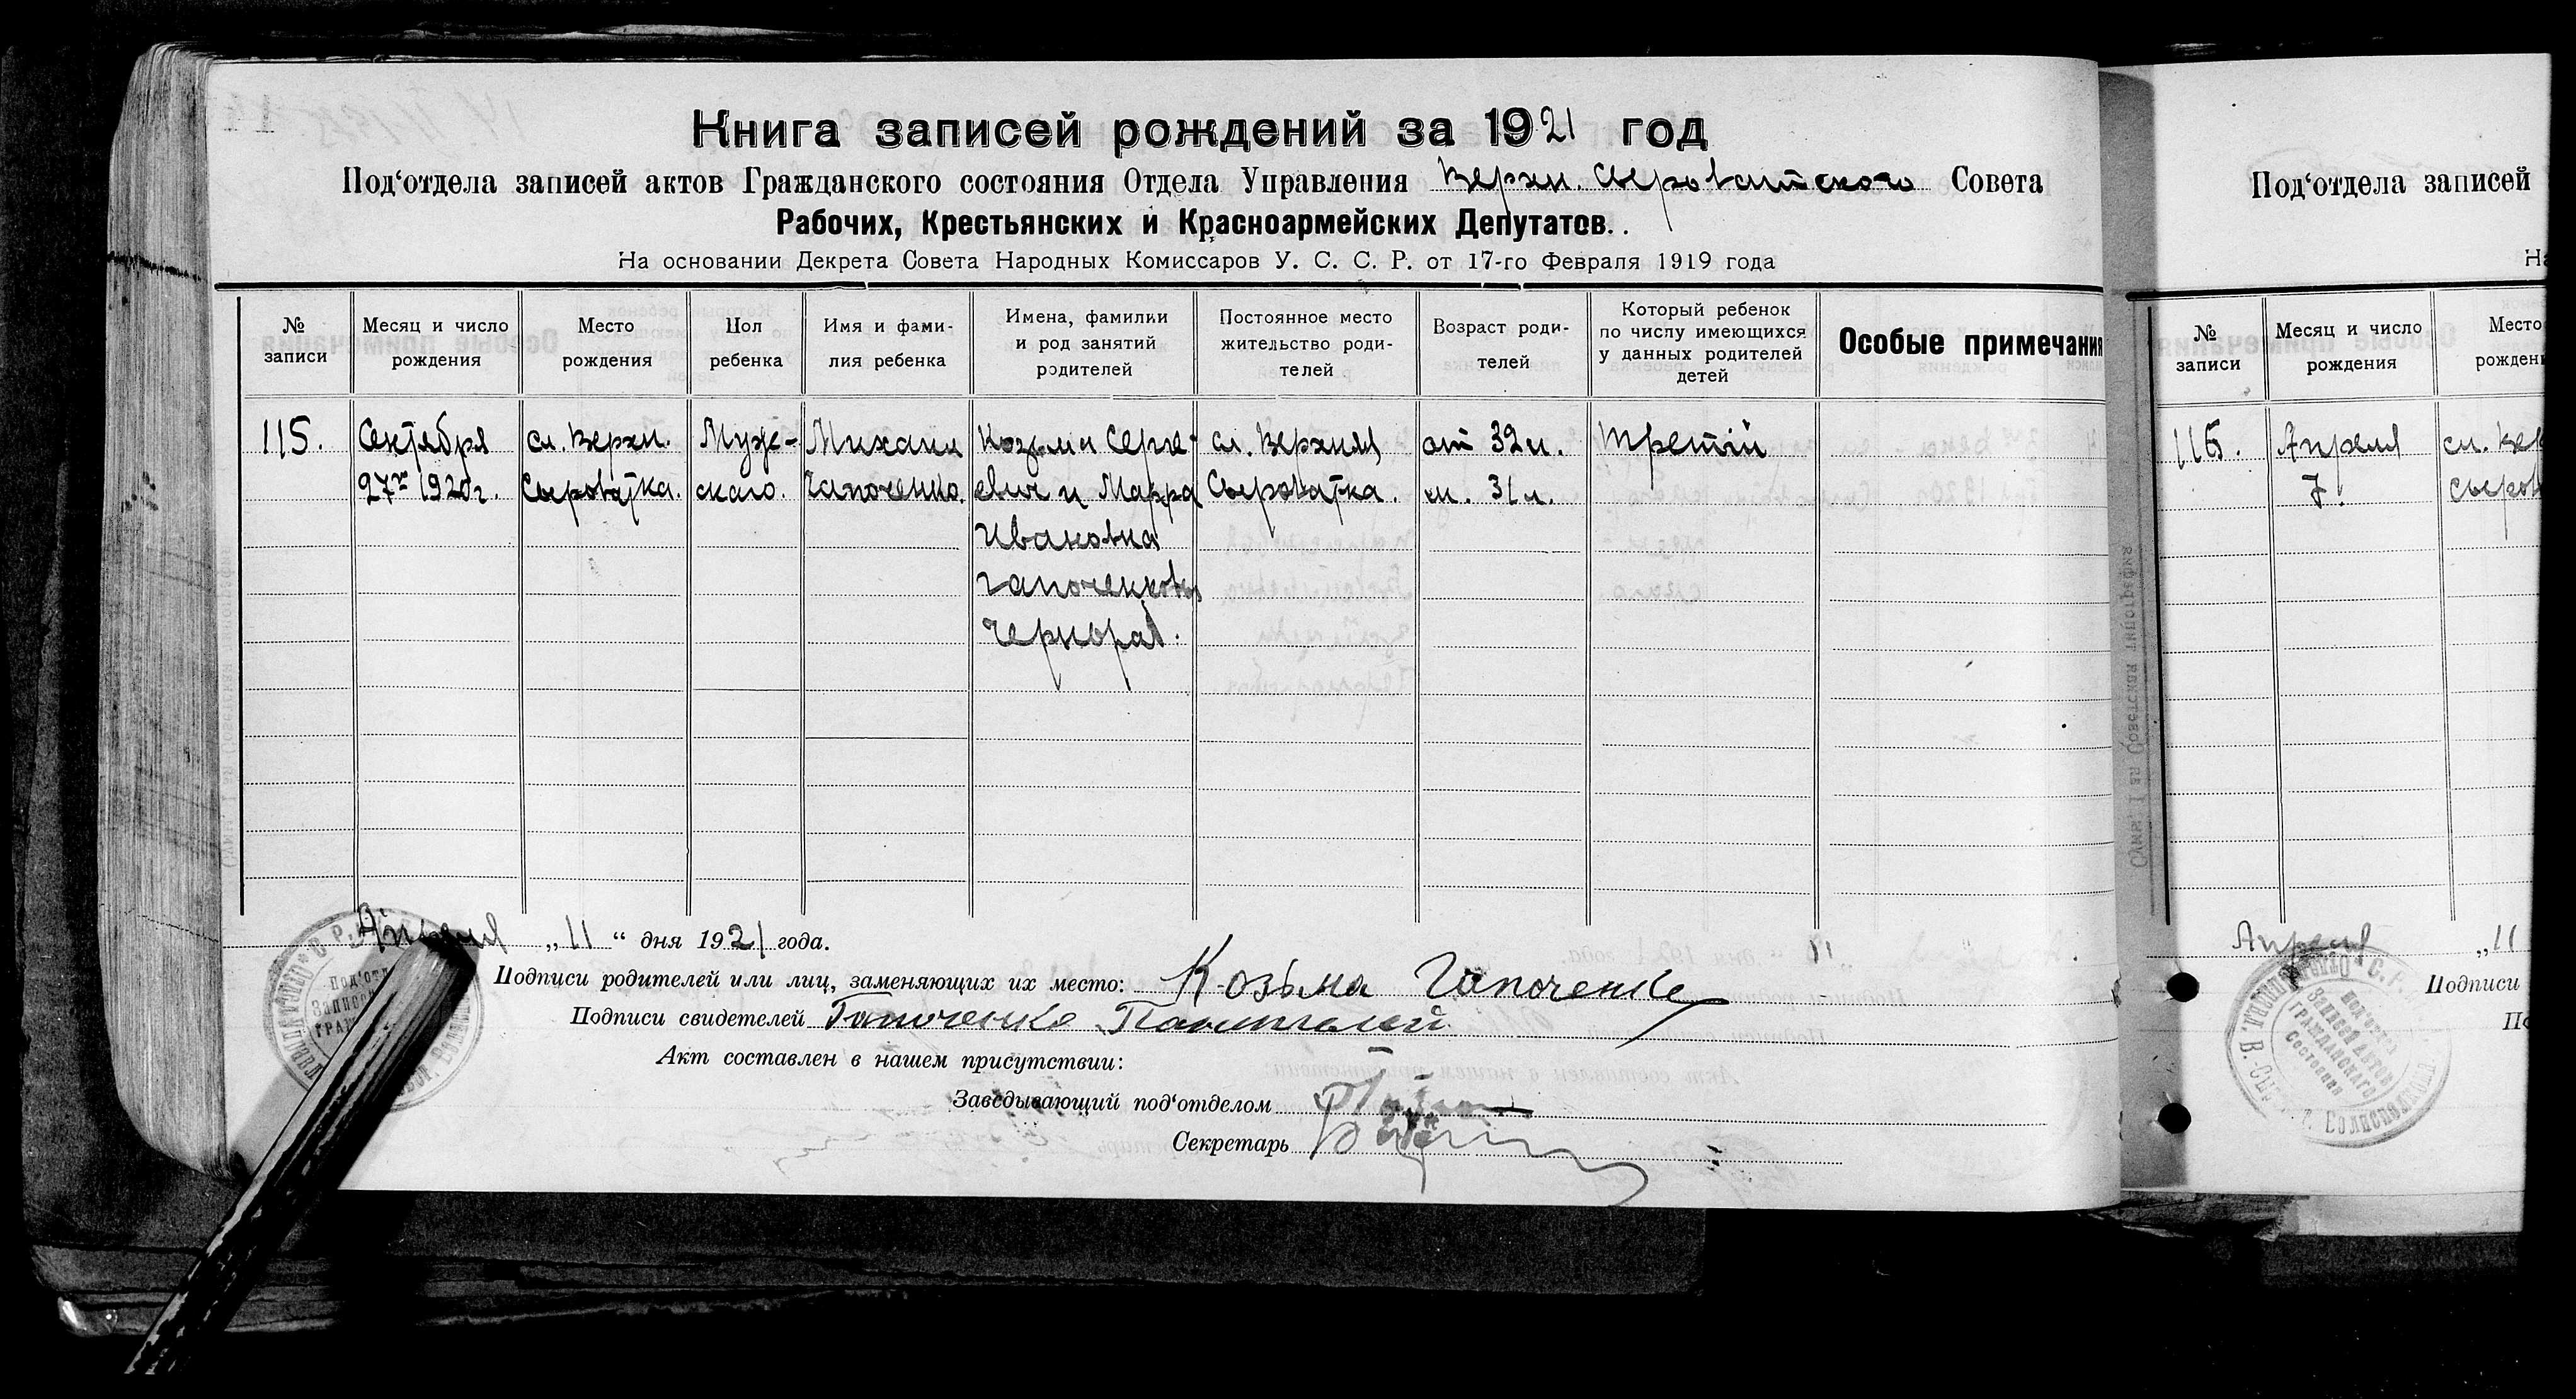 Книга записей рождений за 1921 год
Под‘отдела записей актов Гражданского состояния Отдела Управления Верхн. Сыроватского Совета
Рабочих, Крестьянских и Красноармейских Депутатов.
На основании Декрета Совета Народных Комиссаров У. С. С. Р. от 17-го Февраля 1919 года
№ записи
Месяц и число рождения
Место рождения
Пол ребенка
Имя и фами-
лия ребенка
Имена, фамилии
и род занятий
родителей
Постоянное место
жительство роди-
телей
Возраст роди-
телей
Который ребенок
по числу имеющихся
у данных родителей
детей
Особые примечания
115.
Сентября
27го 1920г.
сл. Верхн.
Сыроватка.
Муже-
скаго.
Михаил
Гапоченко.
Козьма Серге-
евич и Марфа
Ивановна
Гапоченковы
Чернораб.
сл. Верхняя
Сыроватка.
от 32 л.
м. 31 л.
Третій
Апреля „11“ дня 1921 года.
Подписи родителей или лиц, заменяющих их место: Козьма Гапоченко
Подписи свидетелей Гапоченко Пантелей
Акт составлен в нашем присутствии:
Заведывающий под‘отделом
Секретарь
Под‘отдела записей
На
№ записи
Месяц и число рождения
Место
рожден
116.
Апреля
7.
сл. Вер
Сыров
Апреля „11
Подписи
По
Под‘отдел
Записей Актов
Гражданского
Состояния